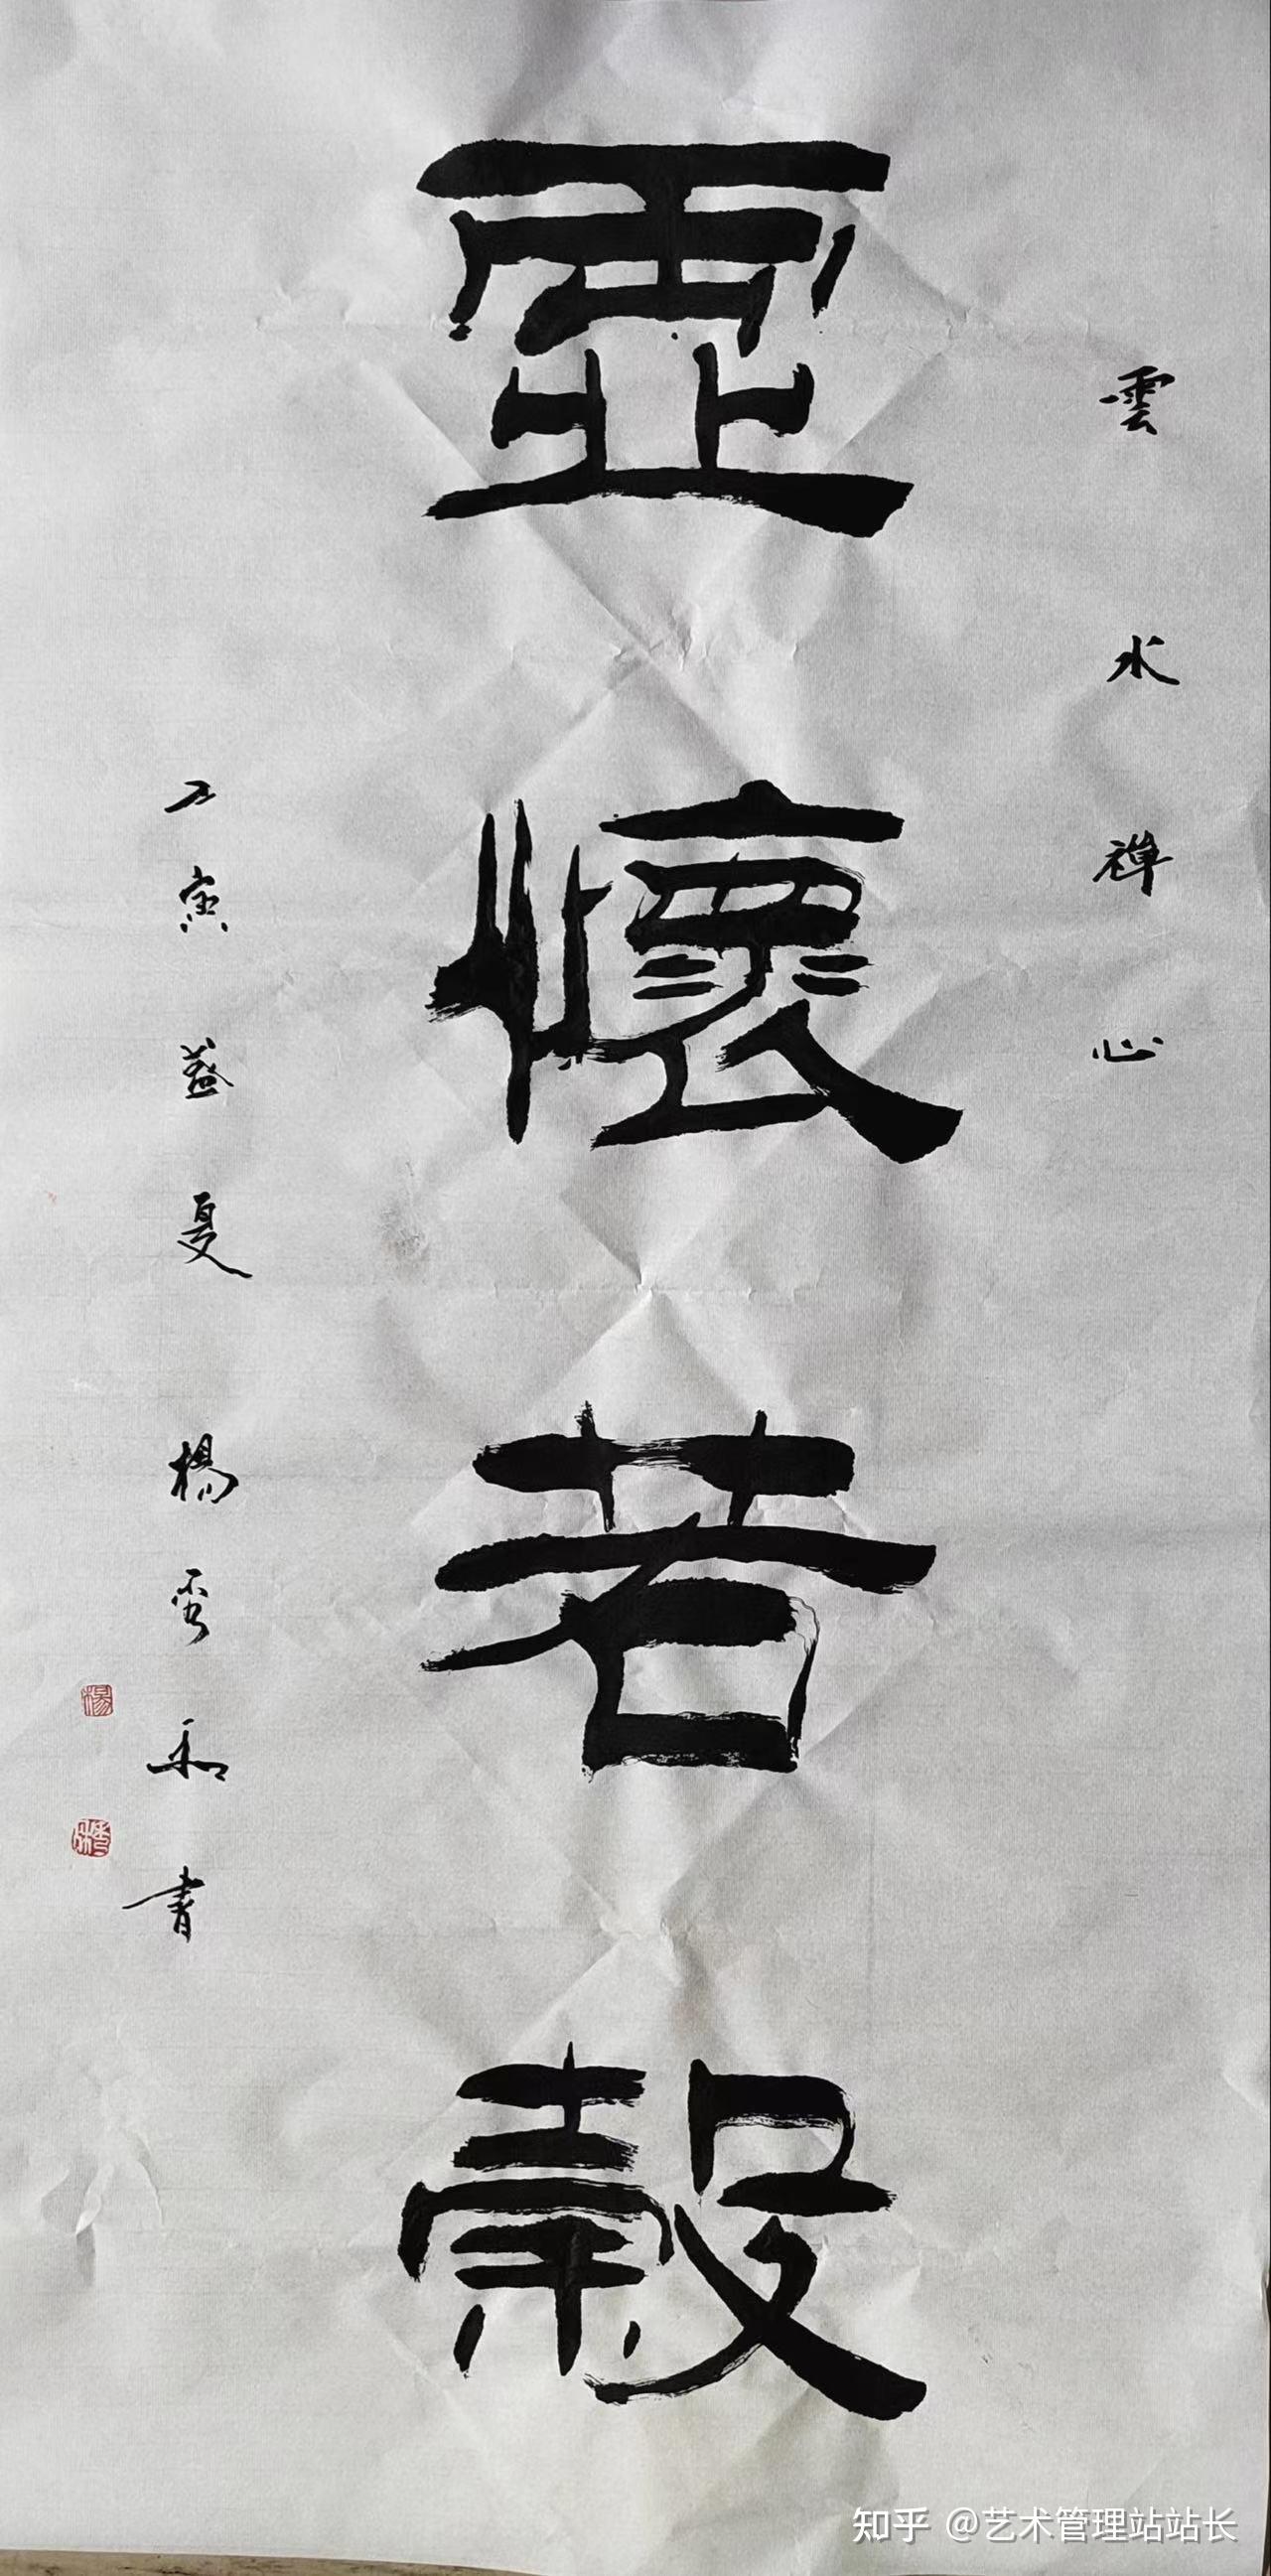 雲水禅心
虛懷若穀
壬寅夏 楊秀和書
楊
知乎 @艺术管理站站长